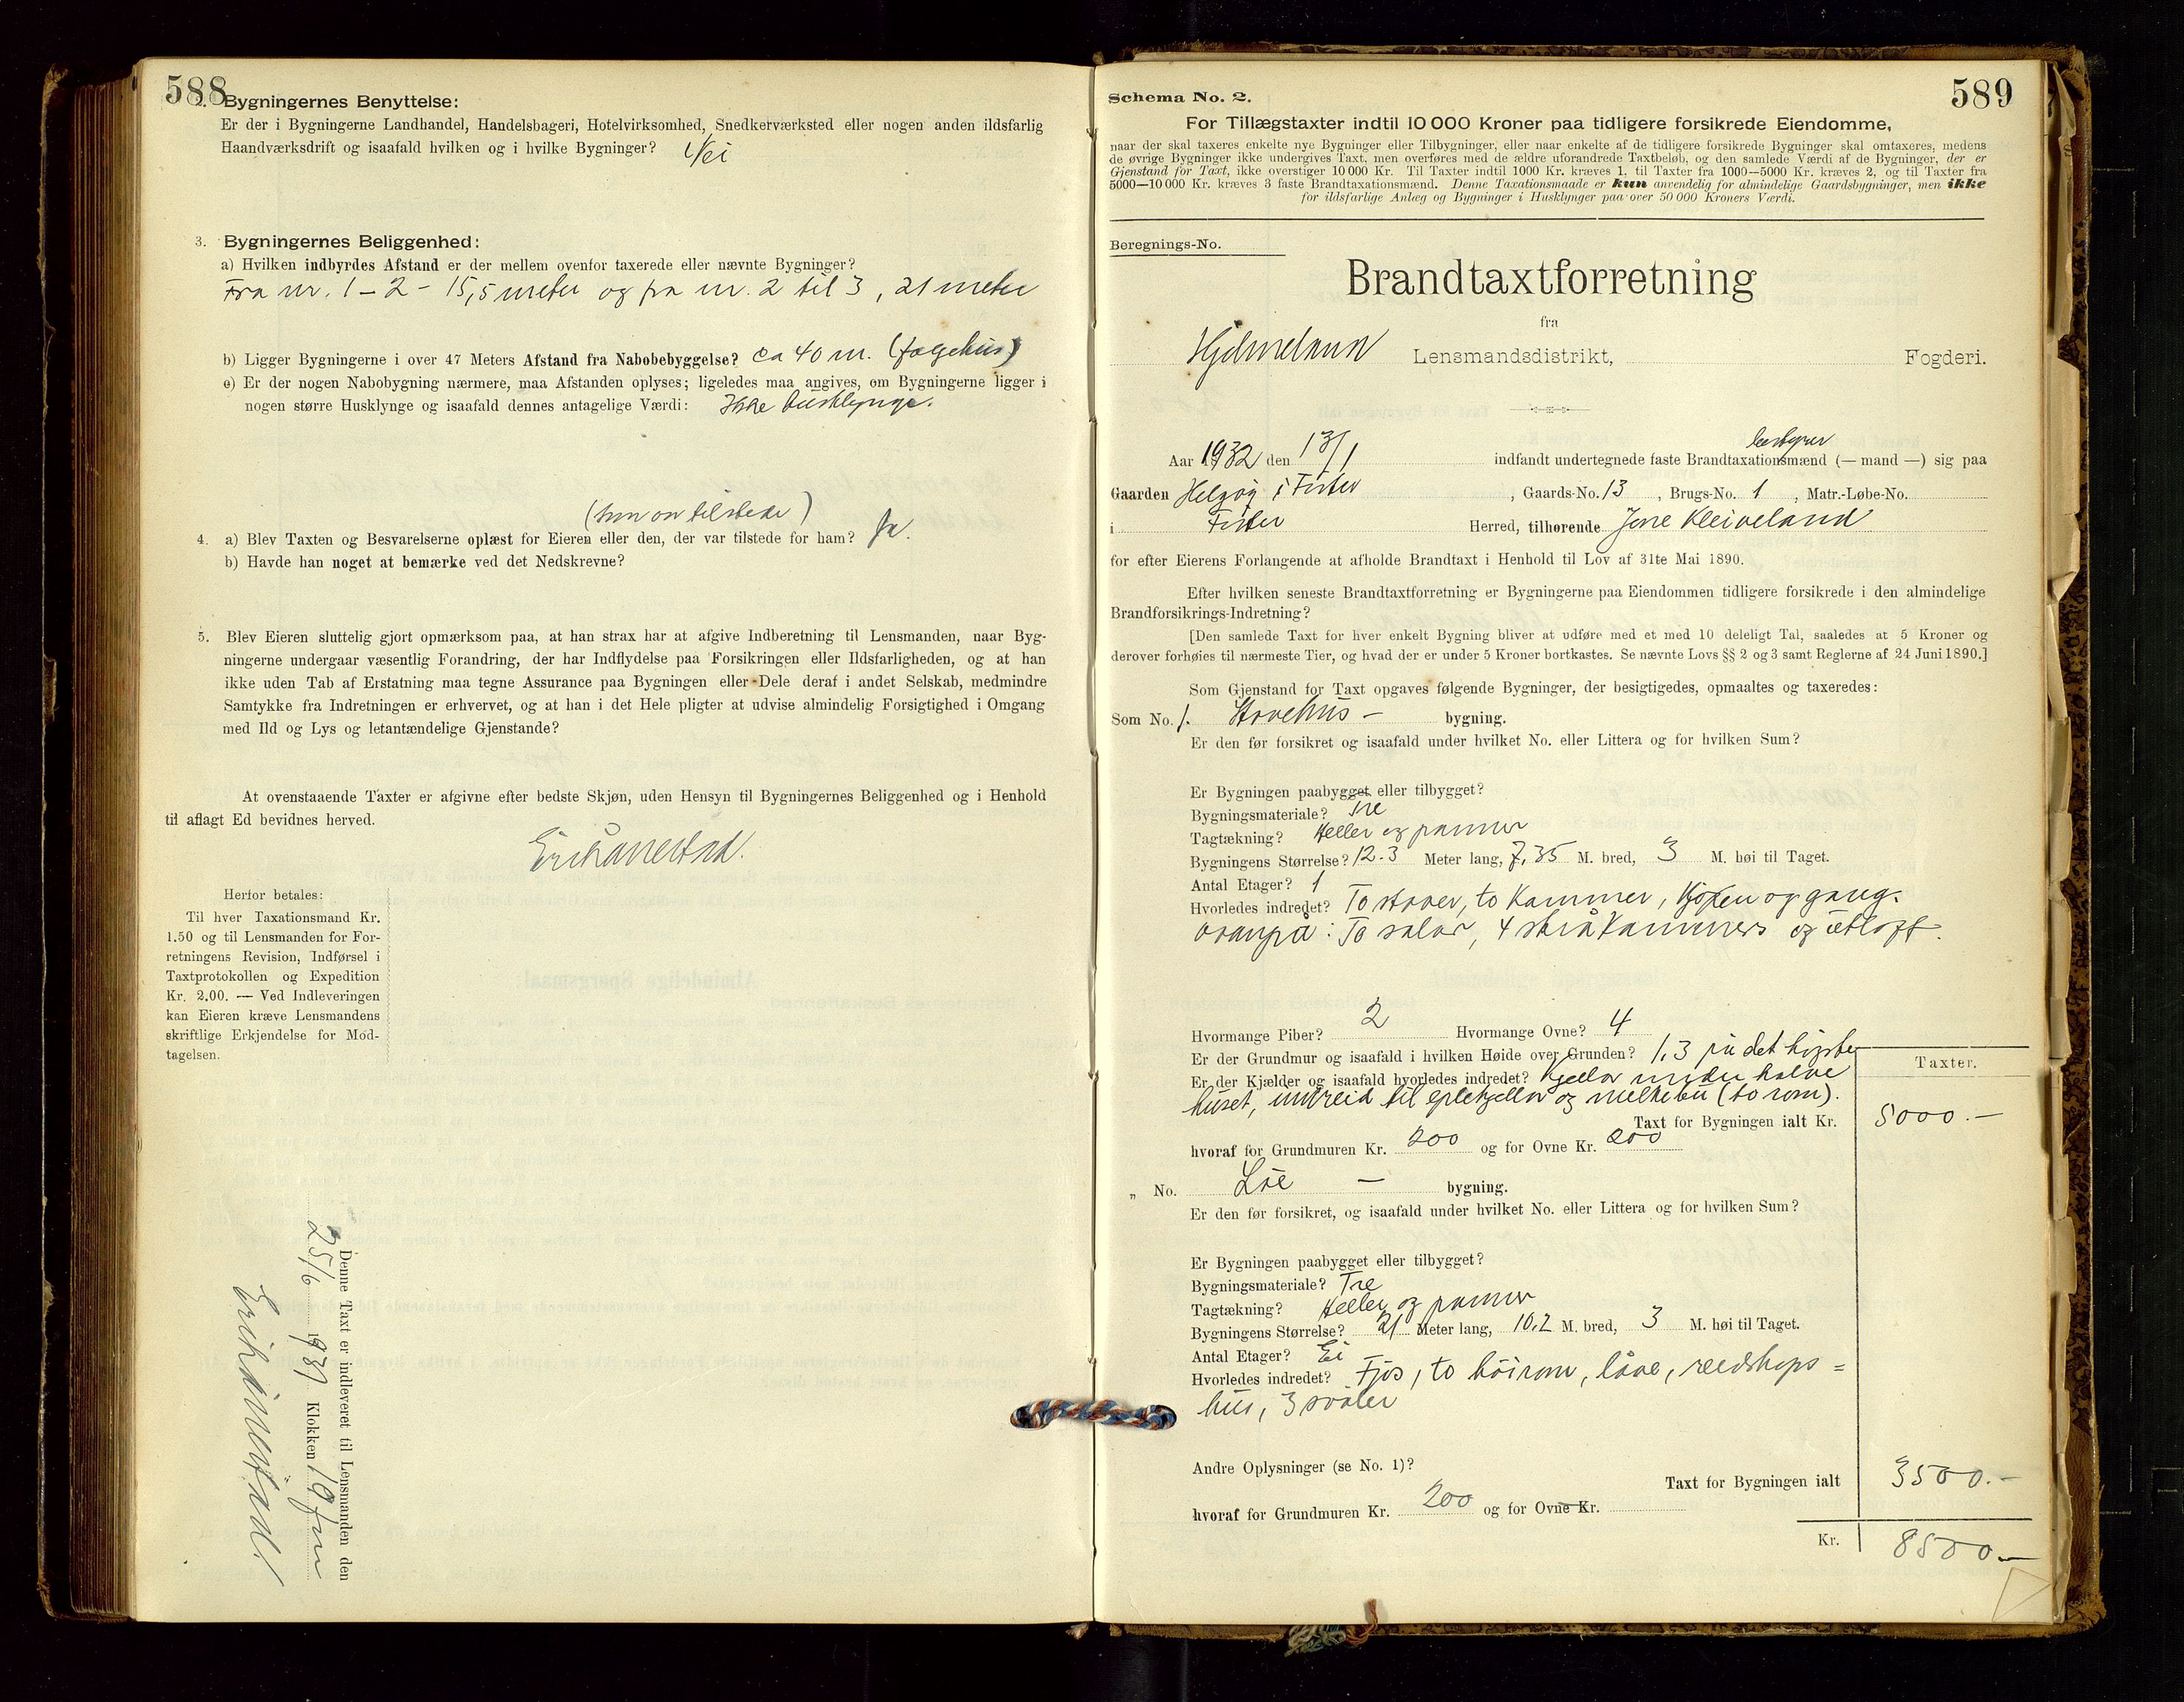 588
2. Bygningernes Benyttelse:
Er der i Bygningerne Landhandel, Handelsbageri, Hotelvirksomhed, Snedkerværksted eller nogen anden ildsfarlig
Haandværksdrift og isaafald hvilken og i hvilke Bygninger? Nei
3. Bygningernes Beliggenhed:
a) Hvilken indbyrdes Afstand er der mellem ovenfor taxerede eller nævnte Bygninger?
Fra nr. 1 – 2 – 15,5 meter og fra nr. 2 til 3, 21 meter
b) Ligger Bygningerne i over 47 Meters Afstand fra Nabobebyggelse? ca 40 m. (følgehus)
c) Er der nogen Nabobygning nærmere, maa Afstanden oplyses; ligeledes maa angives, om Bygningerne ligger i
nogen større Husklynge og isaafald dennes antagelige Værdi: Ikke husklynge.
(som var tilstede)
4. a) Blev Taxten og Besvarelserne oplæst for Eieren eller den, der var tilstede for ham? Ja.
b) Havde han noget at bemærke ved det Nedskrevne?
5. Blev Eieren sluttelig gjort opmærksom paa, at han strax har at afgive Indberetning til Lensmanden, naar Byg-
ningerne undergaar væsentlig Forandring, der har Indflydelse paa Forsikringen eller Ildsfarligheden, og at han
ikke uden Tab af Erstatning maa tegne Assurance paa Bygningen eller Dele deraf i andet Selskab, medmindre
Samtykke fra Indretningen er erhvervet, og at han i det Hele pligter at udvise almindelig Forsigtighed i Omgang
med Ild og Lys og letantændelige Gjenstande?
At ovenstaaende Taxter er afgivne efter bedste Skjøn, uden Hensyn til Bygningernes Beliggenhed og i Henhold
til aflagt Ed bevidnes herved.
Herfor betales:
Til hver Taxationsmand Kr.
1.50 og til Lensmanden for For-
retningens Revision, Indførsel i
Taxtprotokollen og Expedition
Kr. 2.00. — Ved Indleveringen
kan Eieren kræve Lensmandens
skriftlige Erkjendelse for Mod-
tagelsen.
Denne Taxt er indleveret til Lensmanden den
25/6 193 Klokken 19
589
Schema No. 2.
For Tillægstaxter indtil 10 000 Kroner paa tidligere forsikrede Eiendomme,
naar der skal taxeres enkelte nye Bygninger eller Tilbygninger, eller naar enkelte af de tidligere forsikrede Bygninger skal omtaxeres, medens
de øvrige Bygninger ikke undergives Taxt, men overføres med de ældre uforandrede Taxtbeløb, og den samlede Værdi af de Bygninger, der er
Gjenstand for Taxt, ikke overstiger 10 000 Kr. Til Taxter indtil 1000 Kr. kræves 1, til Taxter fra 1000—5000 Kr. kræves 2, og til Taxter fra
5000—10 000 Kr. kræves 3 faste Brandtaxationsmænd. Denne Taxationsmaade er kun anvendelig for almindelige Gaardsbygninger, men ikke
for ildsfarlige Anlæg og Bygninger i Husklynger paa over 50 000 Kroners Værdi.
Beregnings-No.
Brandtaxtforretning
fra
Hjelmeland Lensmandsdistrikt, Fogderi.
bestyrer
Aar 1932 den 13/1 indfandt undertegnede faste Brandtaxationsmænd (— mand —) sig paa
Gaarden Helgøy i Fister, Gaards-No. 13, Brugs-No. 1, Matr.-Løbe-No.
i Fister Herred, tilhørende Jone Kleiveland
for efter Eierens Forlangende at afholde Brandtaxt i Henhold til Lov af 31te Mai 1890.
Efter hvilken seneste Brandtaxtforretning er Bygningerne paa Eiendommen tidligere forsikrede i den almindelige
Brandforsikrings-Indretning?
[Den samlede Taxt for hver enkelt Bygning bliver at udføre med et med 10 deleligt Tal, saaledes at 5 Kroner og
derover forhøies til nærmeste Tier, og hvad der er under 5 Kroner bortkastes. Se nævnte Lovs §§ 2 og 3 samt Reglerne af 24 Juni 1890.]
Som Gjenstand for Taxt opgaves følgende Bygninger, der besigtigedes, opmaaltes og taxeredes:
Som No. 1. Stovehus – bygning.
Er den før forsikret og isaafald under hvilket No. eller Littera og for hvilken Sum?
Er Bygningen paabygget eller tilbygget?
Bygningsmateriale? Tre
Tagtækning? Heller og panner
Bygningens Størrelse? 12.3 Meter lang, 7,35 M. bred, 3 M. høi til Taget.
Antal Etager? 1
Hvorledes indredet? To stover, to kammer, kjøken og gang.
ovanpå: To salar, 4 skråkammers og utloft.
Hvormange Piber? 2 Hvormange Ovne? 4
Er der Grundmur og isaafald i hvilken Høide over Grunden? 1,3 på det høgste
Er der Kjælder og isaafald hvorledes indredet? Kjellar under halve
huset, innreid til eplekjellar og melkebu (to rom).
Taxter.
Taxt for Bygningen ialt Kr. 5000.–
hvoraf for Grundmuren Kr. 200 og for Ovne Kr. 200
„ No. Løe – bygning.
Er den før forsikret, og isaafald under hvilket No. eller Littera og for hvilken Sum?
Er Bygningen paabygget eller tilbygget?
Bygningsmateriale? Tre
Tagtækning? Heller og panner
Bygningens Størrelse? 21 Meter lang, 10,2 M. bred, 3 M. høi til Taget.
Antal Etager? Ei
Hvorledes indredet? Fjøs, to høirom, låve, reidskaps=
hus, 3 svåler
Andre Oplysninger (se No. 1)?
Taxt for Bygningen ialt 3500.–
hvoraf for Grundmuren Kr. 200 og for Ovne Kr.
Kr. 8500.–